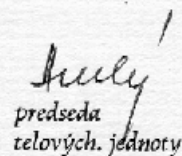 predseda
telových. jednoty